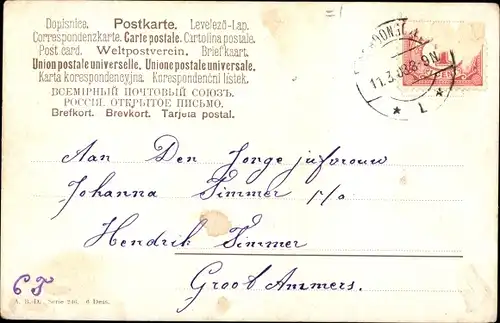 Dopisnice. Postkarte. Levelező-Lap.
Correspondenzkarte. Carte postale. Cartolina postale.
Post card. Weltpostverein. Briefkaart.
Union postale universelle. Unione postale universale.
Karta korespondencyjna. Korespondenční lístek.
ВСЕМІРНЫЙ ПОЧТОВЫЙ СОЮЗЪ.
РОССІЯ. ОТКРЫТОЕ ПИСЬМО.
Brefkort. Brevkort. Tarjeta postal.
11.3.08.8-9N
1
Aan Den Jonge jufvrouw
Johanna Timmer p/o
Hendrik Timmer
Groot Ammers.
6 T
A. R.-D. Serie 246. 6 Dess.